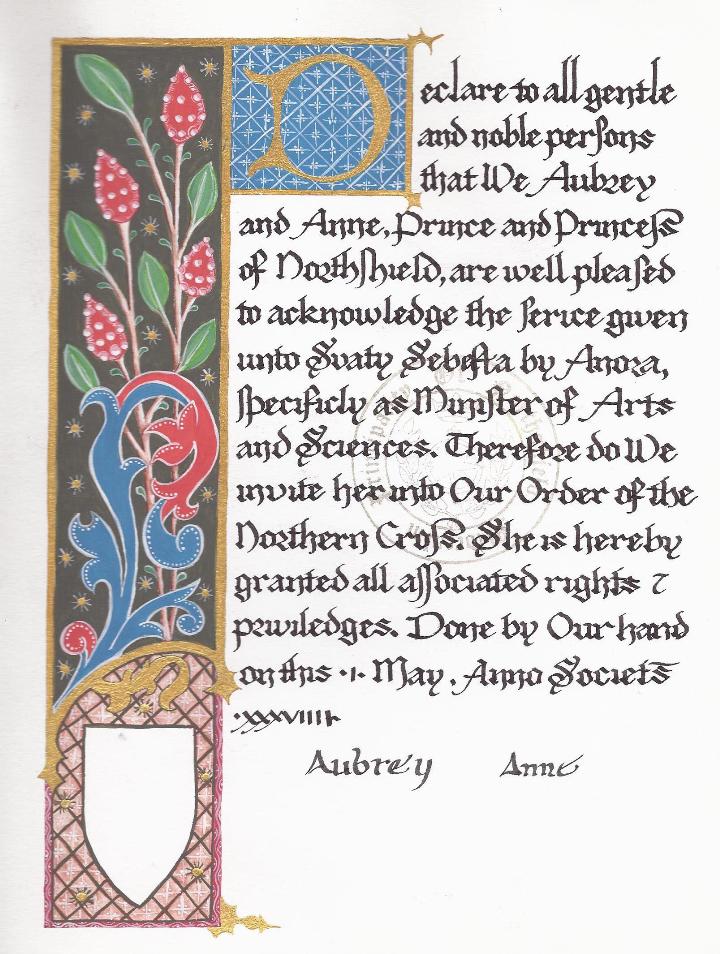 Declare to all gentle
and noble perſons
that We Aubrey
and Anne, Prince and Princeſs
of Northſhield, are well pleaſed
to acknowledge the ſerice given
unto Svaty Sebeſta by Anora,
ſpecificly as Miniſter of Arts
and Sciences. Therefore do We
invite her into Our Order of the
Northern Croſs. She is hereby
granted all aſſociated rights ⁊
priviledges. Done by Our hand
on this ·1· May. Anno Societs
·xxxviiii·
Aubrey Anne